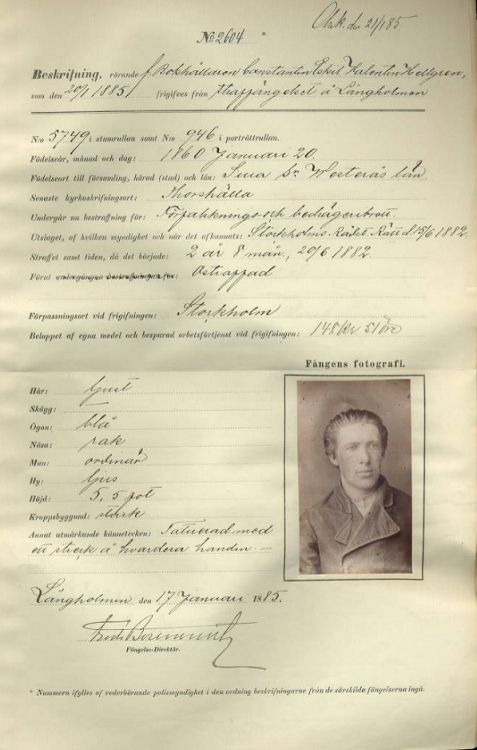 Ank. den 21/1 85
No 2604 *
Beskrifning, rörande f. Bokhållaren Constantin Ekil Valentin Hellgren,
som den 20/1 1885 frigifves från straffängelset å Långholmen
N:o 5749 i stamrullan samt N:o 946 i porträttrullan.
Födelseår, månad och dag: 1860 Januari 20.
Födelseort till församling, härad (stad) och län: Westerås län.
Senaste kyrkoskrifningsort: Thorshälla
Undergår nu bestraffning för: Förfalsknings- och bedrägeribrott.
Utslaget, af hvilken myndighet och när det afkunnats: Stockholms Rådst. Rätt d. 15/6 1882.
Straffet samt tiden, då det började: 2 år 8 mån., 20/6 1882.
Förut undergångna bestraffningar för: Ostraffad
Förpassningsort vid frigifningen: Stockholm
Beloppet af egna medel och besparad arbetsförtjenst vid frigifningen: 148 kr 51 öre
Fångens fotografi.
Hår: ljust
Skägg:
Ögon: blå
Näsa: rak
Mun: ordinär
Hy: ljus
Höjd: 5,5 fot
Kroppsbyggnad: stark
Annat utmärkande kännetecken: Tatuerad med
ett streck å hvardera handen. —
Långholmen den 17 Januari 1885.
Fängelse-Direktör.
* Nummern ifylles af vederbörande polismyndighet i den ordning beskrifningarne från de särskilda fängelserna ingå.